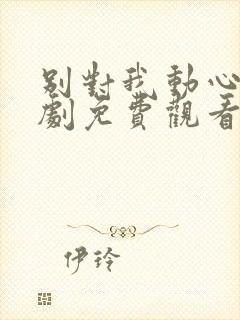 別對我動心
劇免費觀看
伊玲